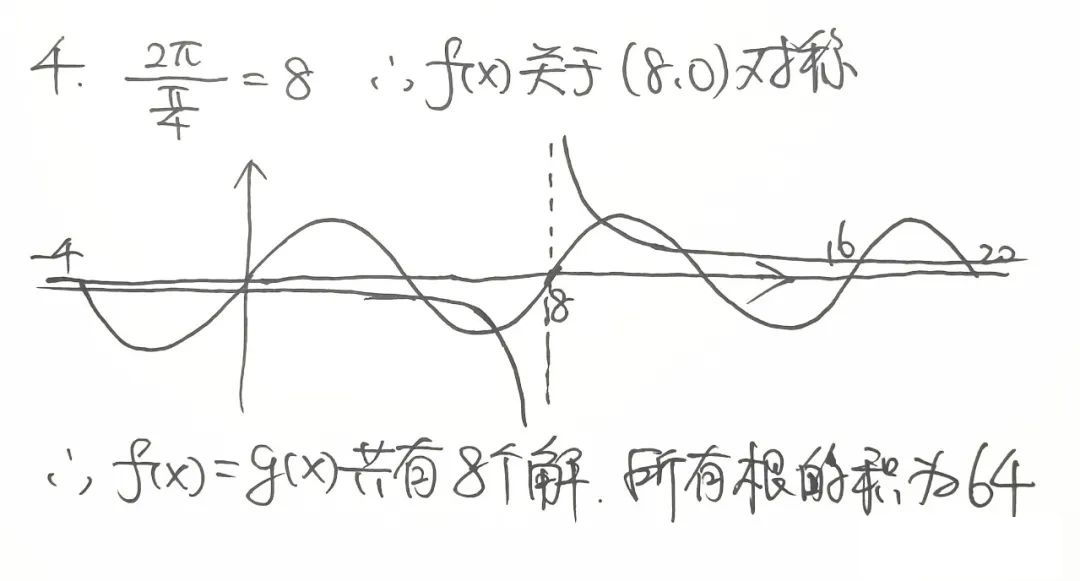 4. 2π/(π/4) = 8 ∴ f(x)关于(8,0)对称
-4 16 20
8
∴ f(x)=g(x)共有8个解. 所有根的积为64